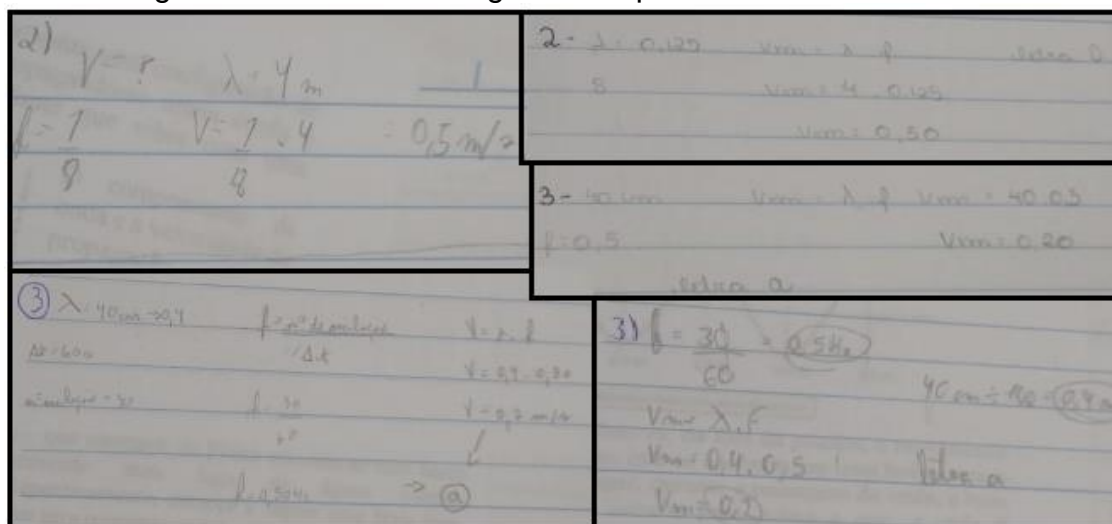 2)
V = ? λ = 4 m
f = 1/8 V = 1/8 . 4 = 0,5 m/s
2 - λ = 0,125 Vm = λ . f letra D
8 Vm = 4 . 0,125
Vm = 0,50
3 - 40 cm Vm = λ . f Vm = 40 . 0,5
f = 0,5 Vm = 0,20
letra a
3 λ = 40 cm → 0,4 f = nº de oscilações / Δt V = λ . f
Δt = 60 s V = 0,4 . 0,50
f = 30/60 V = 0,2 m/s
→ a
3) f = 30/60 = 0,5 Hz
40 cm ÷ 100 = 0,4 m
Vm = λ . F
Vm = 0,4 . 0,5 letra a
Vm = 0,2